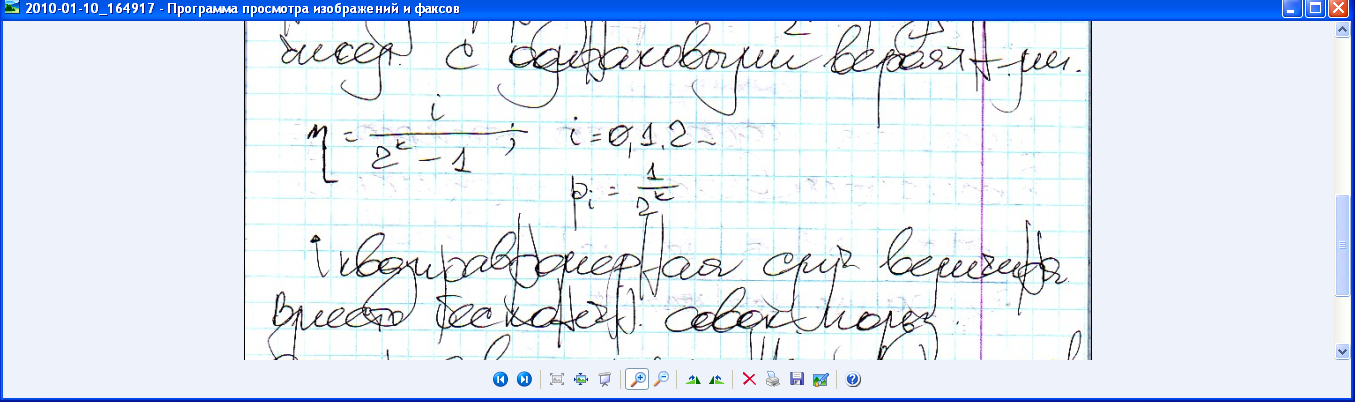 2010-01-10_164917 - Программа просмотра изображений и факсов
чисел с одинаковыми вероят-ми.
η = i / (2^k − 1) ; i = 0,1,2
p_i = 1 / 2^k
квазиравномерная случ величина
Вместо бесконечн. совок.